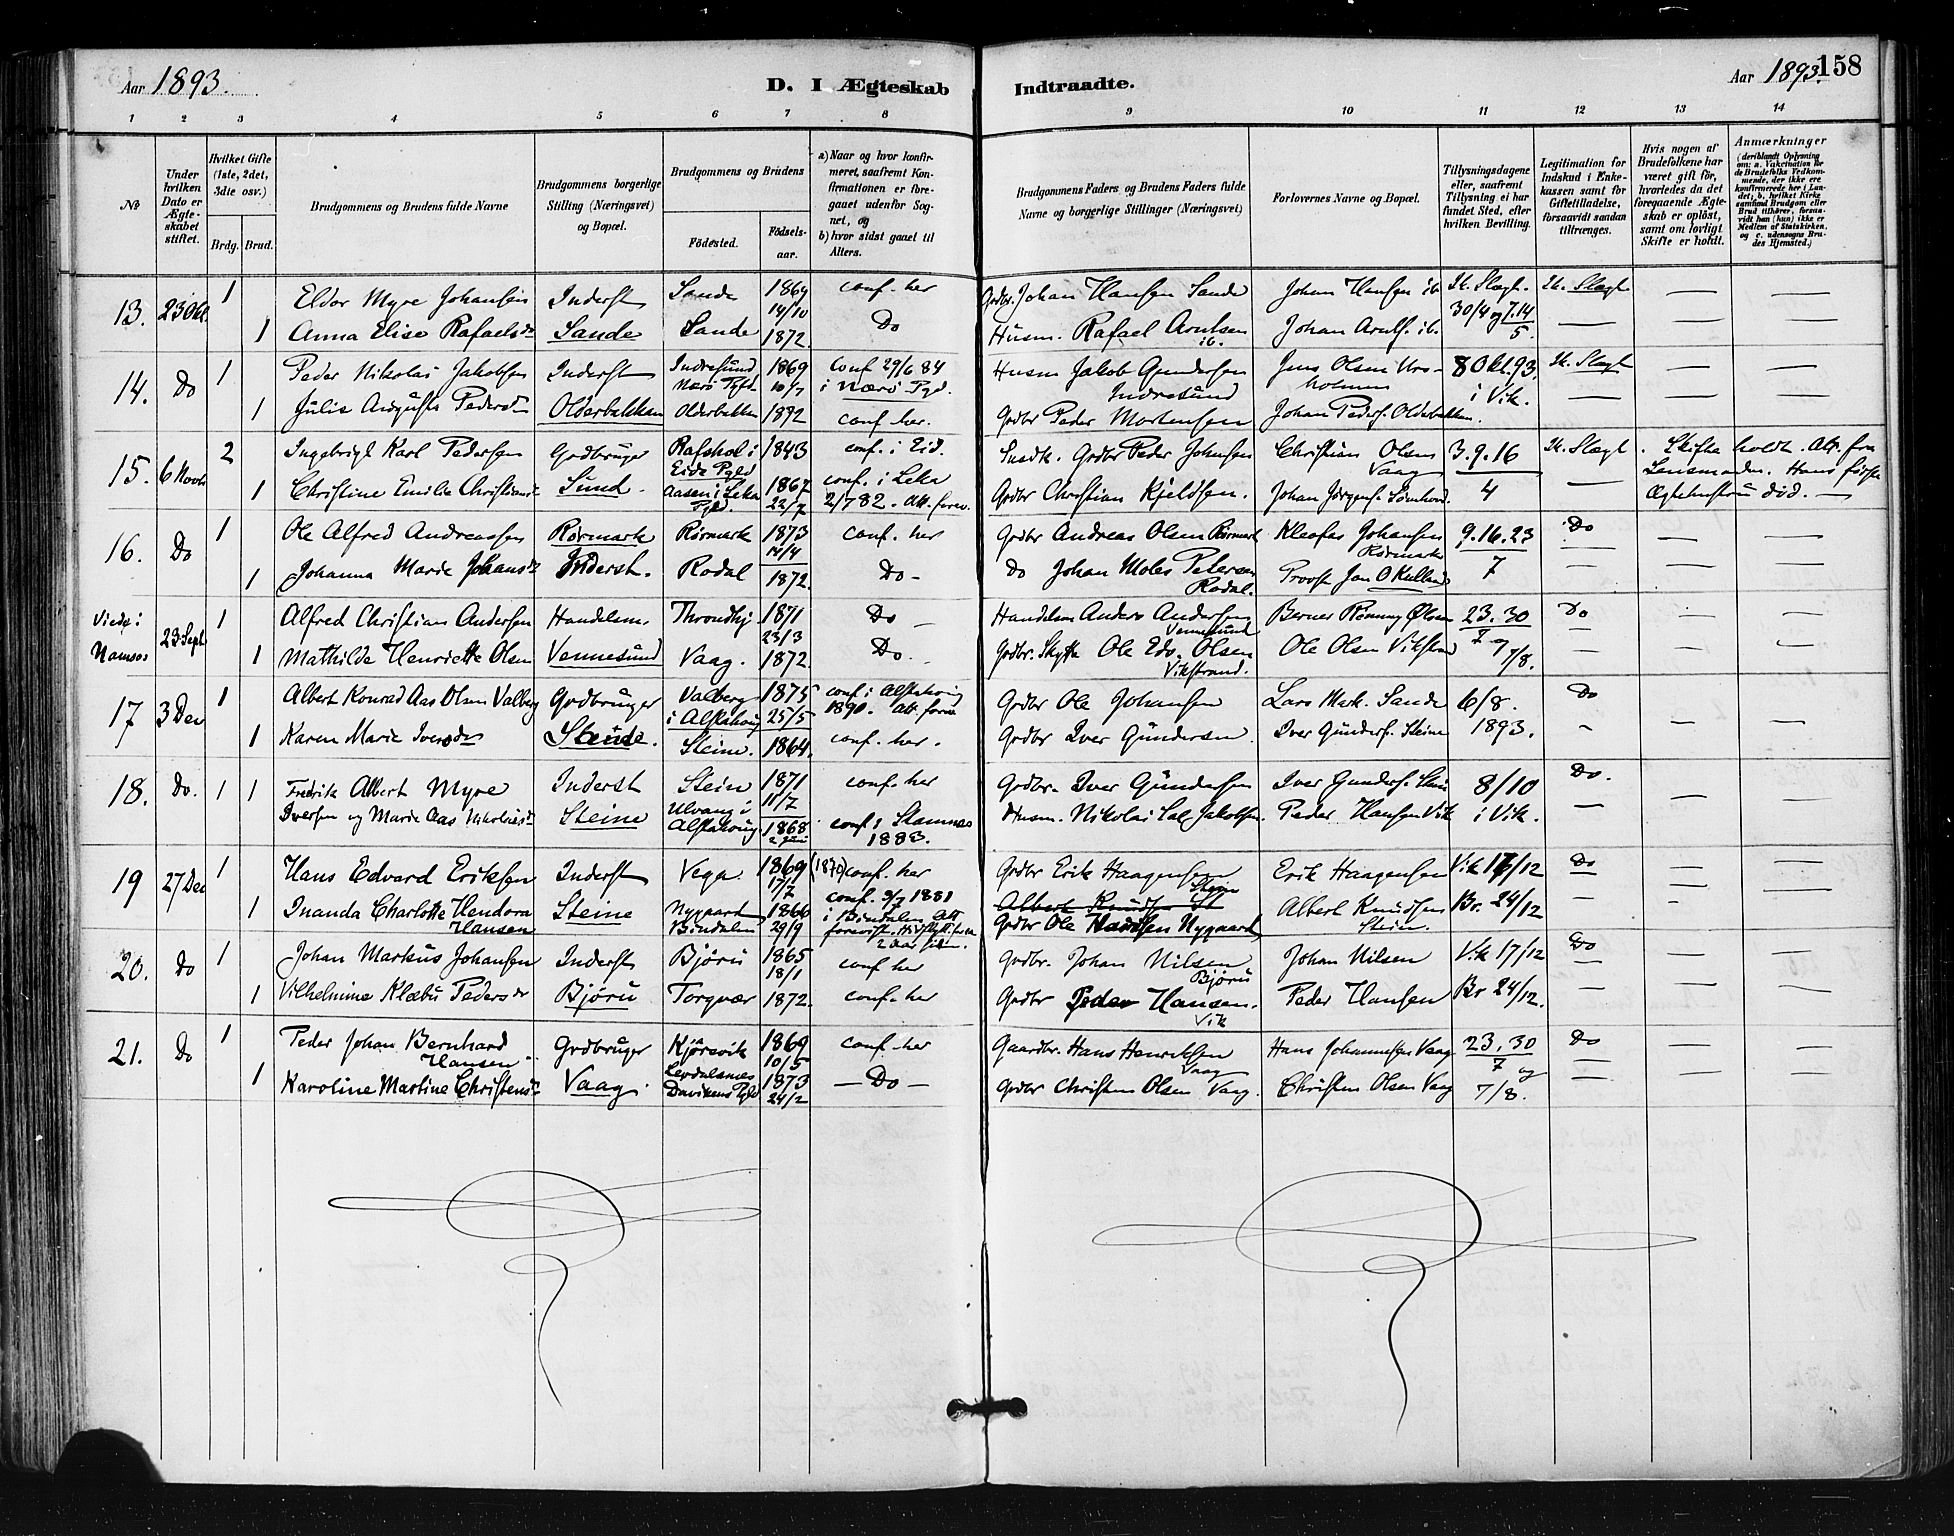 Aar 1893.
D. I Ægteskab
Indtraadte.
Aar 1893.
158
1 2 3 4 5 6 7 8
9 10 11 12 13 14
No
Under hvilken Dato er Ægteskabet stiftet.
Hvilket Gifte (1ste, 2det, 3die osv.)
Brdg. Brud.
Brudgommens og Brudens fulde Navne
Brudgommens borgerlige Stilling (Næringsvei) og Bopæl.
Brudgommens og Brudens
Fødested.
Fødselsaar.
a) Naar og hvor konfirmeret, saafremt Konfirmationen er foregaaet udenfor Sognet, og
b) hvor sidst gaaet til Alters.
Brudgommens Faders og Brudens Faders fulde Navne og borgerlige Stillinger (Næringsvei)
Forlovernes Navne og Bopæl.
Tillysningsdagene eller, saafremt Tillysning ei har fundet Sted, efter hvilken Bevilling.
Legitimation for Indskud i Enkekassen samt for Giftetilladelse, forsaavidt saadan tiltrænges.
Hvis nogen af Brudefolkene har været gift før, hvorledes da det foregaaende Ægteskab er opløst, samt om lovligt Skifte er holdt.
Anmærkninger
(deriblandt Oplysning om: a. Vakcination for de Brudefolks Vedkommende, der ikke ere konfirmerede her i Landet, b. hvilket Kirkesamfund Brudgom eller Brud tilhører, forsaavidt han (hun) ikke er Medlem af Statskirken, og c. udensogns Brudes Hjemsted.)
13. 23 Okt. 1 Eldor Myre Johansen Inderst Sande 1869 14/10 conf. her Grdbr. Johan Hansen Sande Johan Hansen ib. Sk. Slagt. Sk. Slagt — —
1 Anna Elise Rafaelsdr Sande Sande 1872. Do Husm. Rafael Arntsen ib. Johan Arntf. ib. 30/4 og 7.14/5 — — —
14. Do 1 Peder Nikolai Jakobsen Inderst Indresund Nærø Pgld 1869 10/7 conf 29/6 84 i Nærø Pgd. Husm Jakob Gundersen Indresund Jens Olsen 8 Okt. 93. Sk. Slagt — —
1 Julie Auguste Pedersdr Olderbakken Olderbakken 1872 conf her. Grdbr Peder Mortensen Johan Pedersf. Olderbakken i Vik. — — —
15. 6 Novbr 2 Ingebrigt Karl Pedersen Grdbruger Rafshol i Eids Pgld 1843 conf. i Eid. Grdbr Peder Johnsen Christian Olsen Vaag 3.9.16 Sk. Slagt. Skifte holdt. Att. fra
1 Christine Emilie Christiansdr Sund. Aasen i Leka Pgld. 1867 22/7 conf. i Leka 2/7 82. Att. forev. Grdbr Christian Kjeldsen. Johan Jørgensf. 4 — Lensmanden. Hans første Ægtehustru død. —
16. Do 1 Ole Alfred Andreassen Rørmark Rørmark 1873 14/4 conf. her Grdbr Andreas Olsen Rørmark Kleofas Johansen Rørmark 9.16.23 Do — —
1 Johanna Marie Johansdr Inderst. Rodal 1872. Do — Do Johan Moles Petersen Rodal. Provst Jan O Kulland 7 — — —
Viede i Namsos 23 Sept 1 Alfred Christian Andersen Handelsm. Throndhj 1871 23/3 Do — Handelsm Anders Andersen Vennesund Berner Rønning Olsen 23.30 Do — —
1 Mathilde Henriette Olsen Vennesund Vaag. 1872. Do. — Grdbr. Skytte Ole Edv. Olsen Vikstrand. Ole Olsen Vikstrand 7 og 7/8. — — —
17 3 Dec 1 Albert Konrad Aas Olsen Valberg Grdbruger Valberg i Alstahoug 1875 25/5 conf. i Alstahoug 1890. Att. forev Grdbr Ole Johansen Lars Mark. Sande 6/8. Do — —
1 Karen Marie Iversdr Steine. Steine. 1864. conf. her. Grdbr Iver Gundersen. Iver Gundersf. Steine 1893. — — —
18. Do. 1 1 Fredrik Albert Myre Inderst Stein 1871 11/7 conf. her Grdbr. Iver Gundersen Iver Gundersf. Stein 8/10 Do. — —
Iversen og Marie Aas Nikolaisdr Steine Ulvang i Alstahoug 1868 2 Juni conf. i Stamnes 1883. Husm. Nikolai Jakobsen. Peder Hansen Vik i Vik. — — —
19 27 Dec 1 Hans Edvard Eriksen Inderst Vega 1869 17/7 (1870) conf. her Grdbr Erik Haagensen Stein Erik Haagensen Vik 17/12 Do — —
1 Inanda Charlotte Hendora Hansen Steine Nygaard Bindalen 1866 29/9 conf. 3/7 1881 i Bindalen Att forevist. Albert Knudsen St Grdbr Ole Hansen Nygaard Albert Knudsen Stein. Br. 24/12 — — —
20. Do 1 Johan Markus Johansen Inderst Bjørü 1865 18/1 conf her Grdbr. Johan Nilsen Bjørü Johan Nilsen Vik 17/12 Do — —
1 Vilhelmine Klæbu Pedersdr Bjørü Torgvær 1872. conf. her Grdbr Peder Hansen. Vik Peder Hansen Br 24/12. — — —
21. Do 1 Peder Johan Bernhard Hansen Grdbruger Kjørsvik 1869 10/5 conf. her Gaardbr. Hans Henriksen Vaag Hans Johannesen Vaag 23.30 Do — —
1 Karoline Martine Christensdr Vaag. Davikens Pgld 1873 24/2 — Do — Grdbr Christen Olsen Vaag. Christen Olsen Vaag 7 og 7/8. — — —